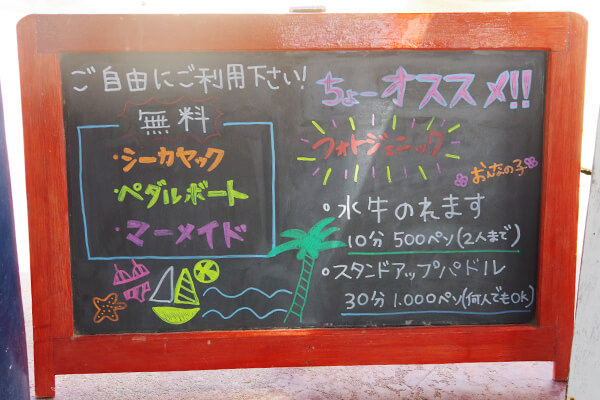 ご自由にご利用下さい!
無料
・シーカヤック
・ペダルボート
・マーメイド
ちょーオススメ!!
フォトジェニック
おんなの子
・水牛のれます
10分 500ペソ(2人まで)
・スタンドアップパドル
30分 1.000ペソ(何人でもOK)